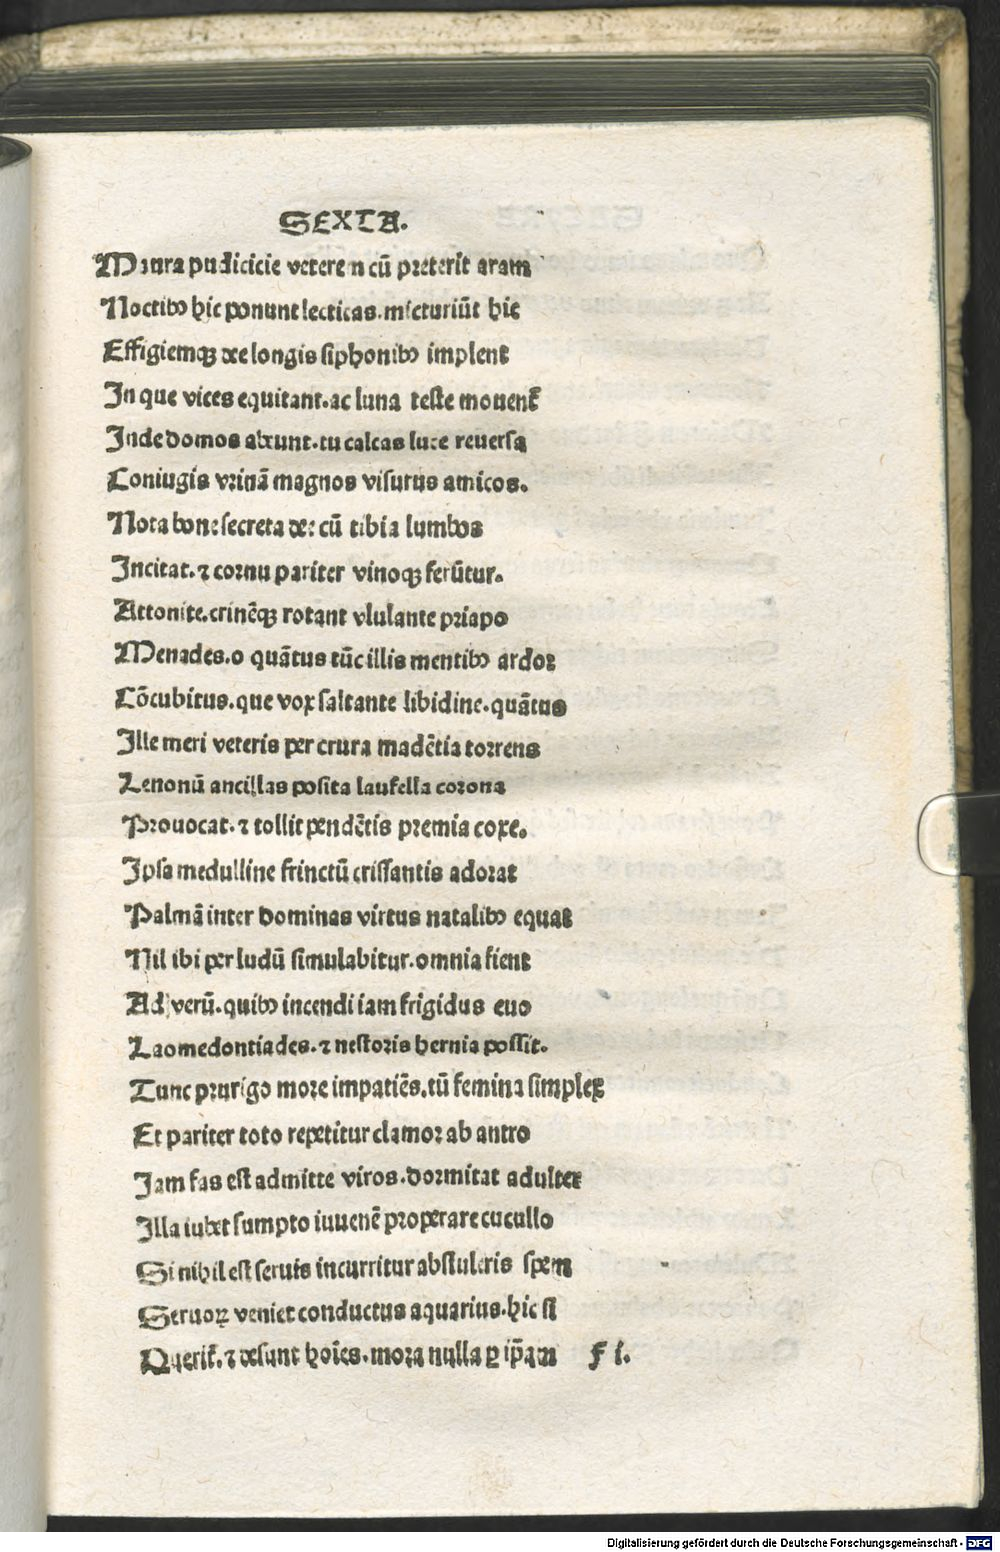 SEXTA.
Maura pudicicie veterem cū preterit aram
Noctibꝰ hic ponunt lecticas. micturiūt hic
Effigiemqꝫ dee longis siphonibꝰ implent
In que vices equitant. ac luna teste mouent̄
Inde domos abeunt. tu calcas luce reuersa
Coniugis vrinā magnos visurus amicos.
Nota bone secreta dee cū tibia lumbos
Incitat. ⁊ cornu pariter vinoqꝫ ferūtur.
Attonite. crinēqꝫ rotant vlulante priapo
Menades. o quātus tūc illis mentibꝰ ardor
Cōcubitus. que vox saltante libidine. quātus
Ille meri veteris per crura madētia torrens
Lenonū ancillas posita laufella corona
Prouocat. ⁊ tollit pendētis premia coxe.
Ipsa medulline frinctū crissantis adorat
Palmā inter dominas virtus natalibꝰ equat
Nil ibi per ludū simulabitur. omnia fient
Ad verū. quibꝰ incendi iam frigidus euo
Laomedontiades. ⁊ nestoris hernia possit.
Tunc prurigo more impatiēs. tū femina simplex
Et pariter toto repetitur clamor ab antro
Iam fas est admitte viros. dormitat adulter
Illa iubet sumpto iuuenē properare cucullo
Si nihil est seruis incurritur abstuleris spem
Seruoꝝ veniet conductus aquarius. hic si
Querit̄. ⁊ desunt hoīes. mora nulla ꝑ ip̄am f i.
Digitalisierung gefördert durch die Deutsche Forschungsgemeinschaft - DFG